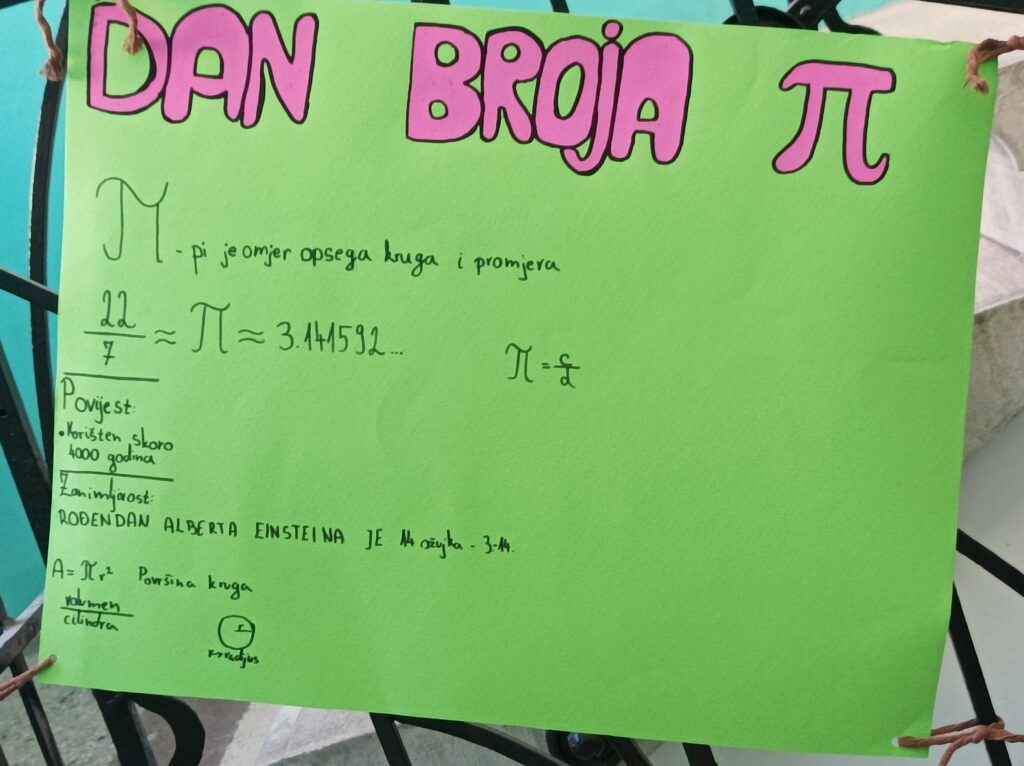 DAN BROJA π
π - pi je omjer opsega kruga i promjera
22/7 ≈ π ≈ 3.141592...
π = c/d
Povijest:
• Korišten skoro
4000 godina
Zanimljivost:
ROĐENDAN ALBERTA EINSTEINA JE 14 ožujka - 3.14.
A = πr² Površina kruga
volumen
cilindra
r
r→radijus